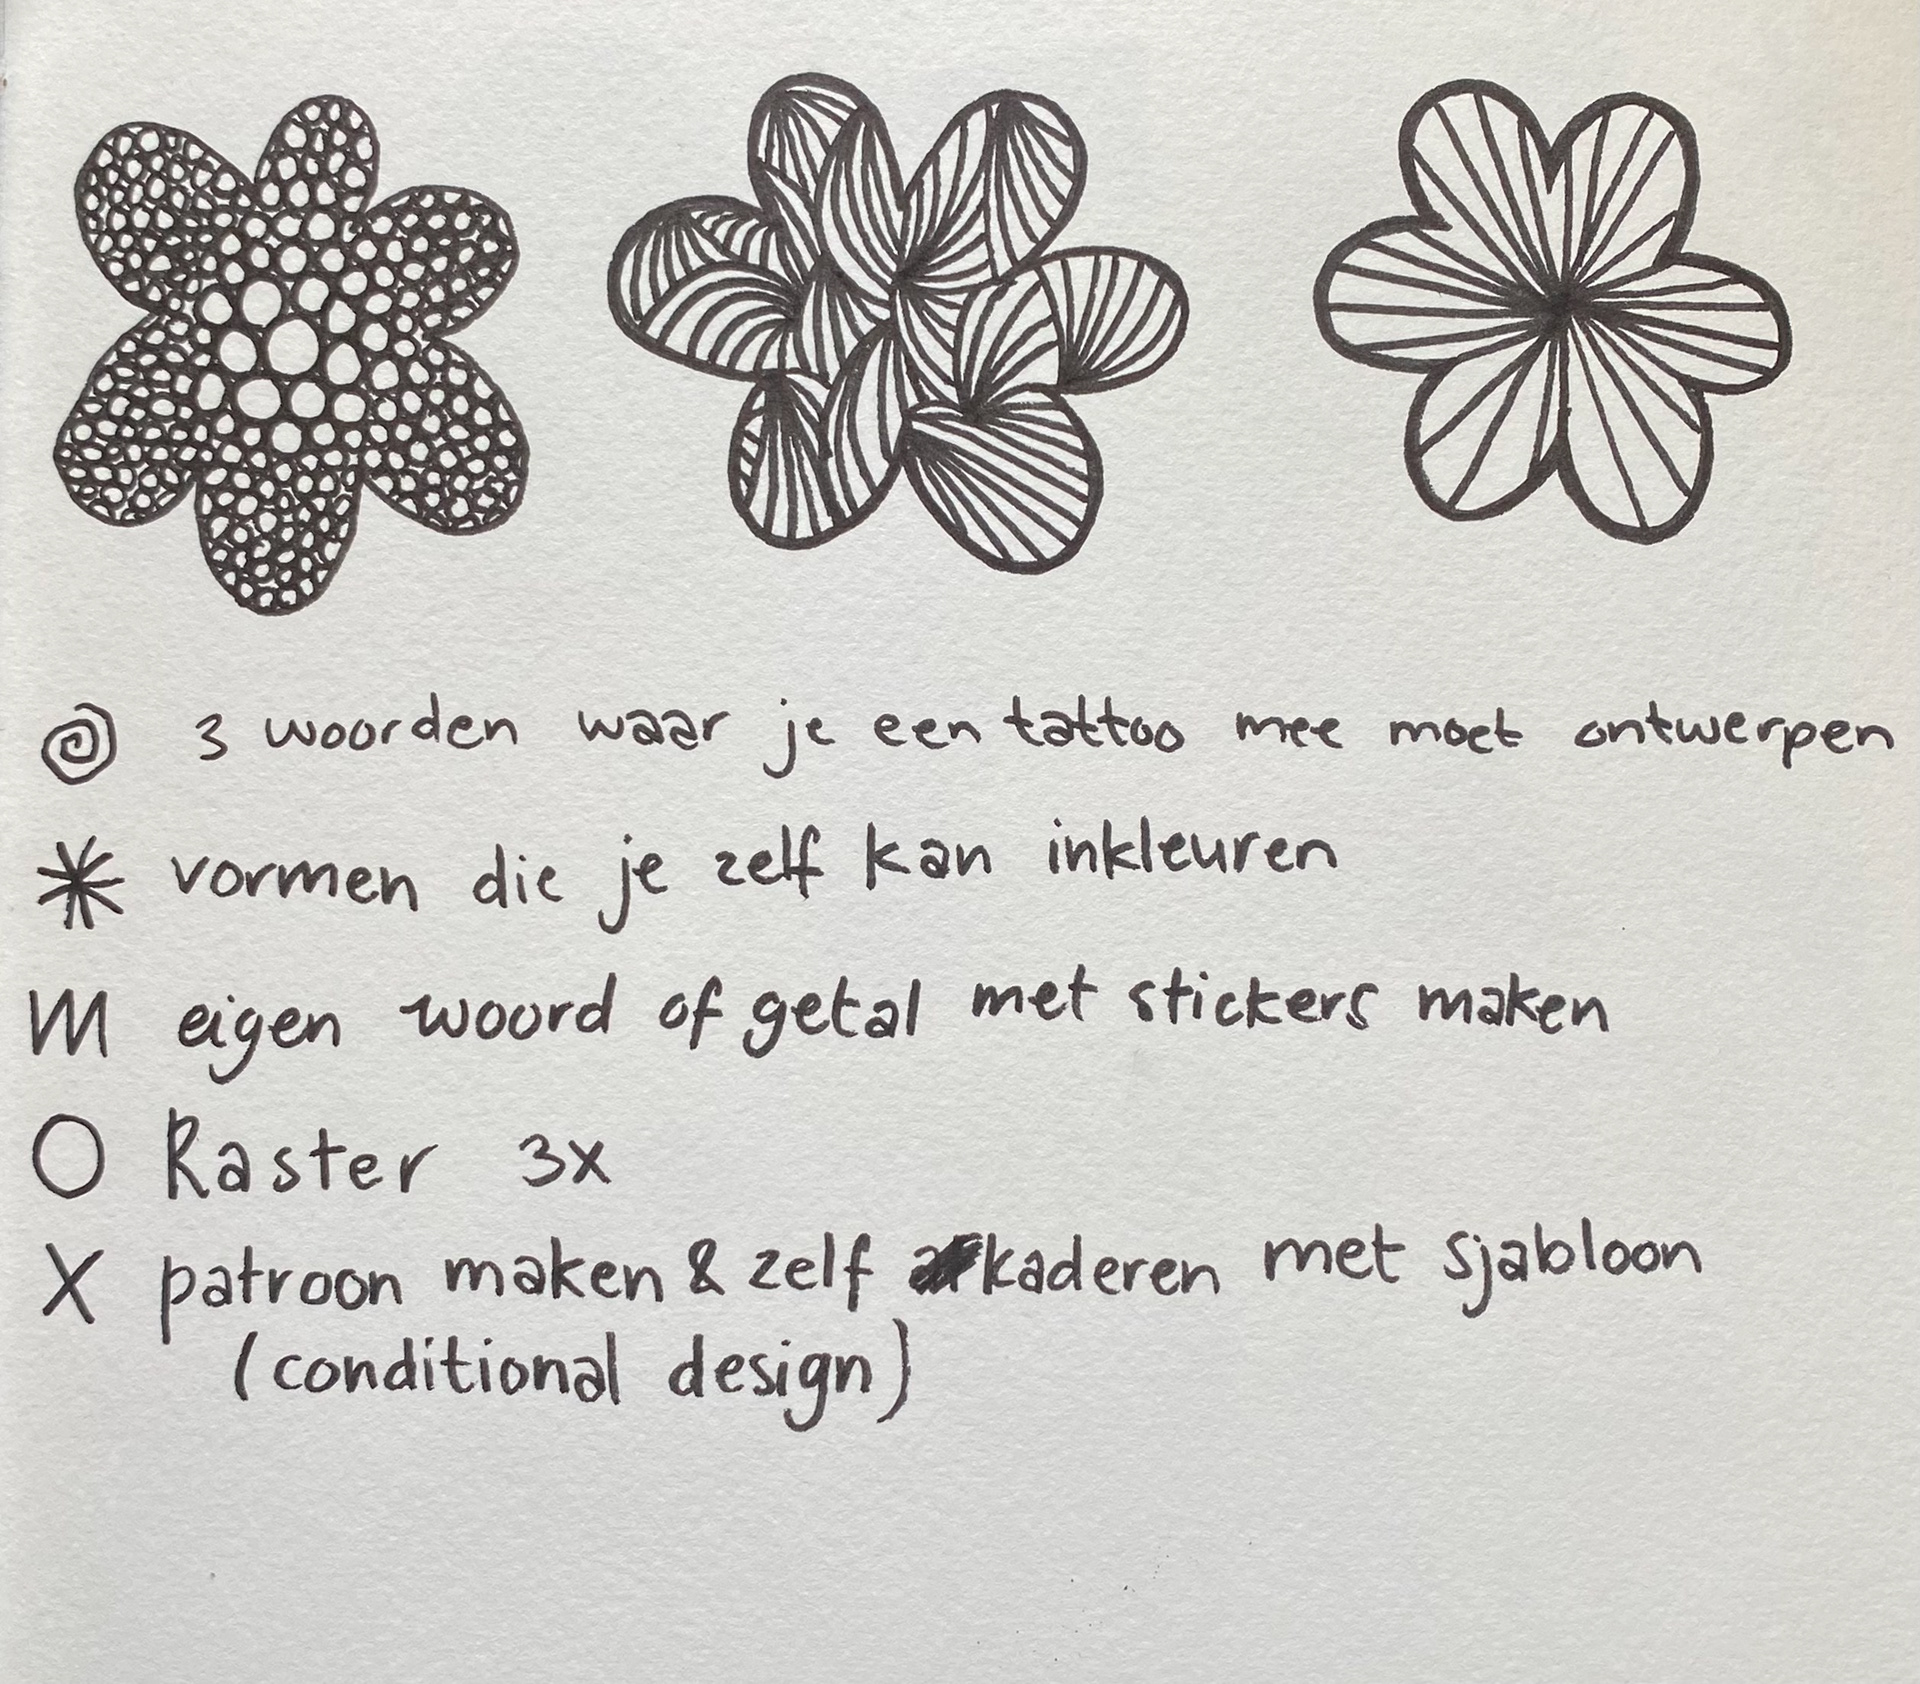 3 woorden waar je een tattoo mee moet ontwerpen
vormen die je zelf kan inkleuren
eigen woord of getal met stickers maken
Raster 3x
patroon maken & zelf kaderen met sjabloon
(conditional design)